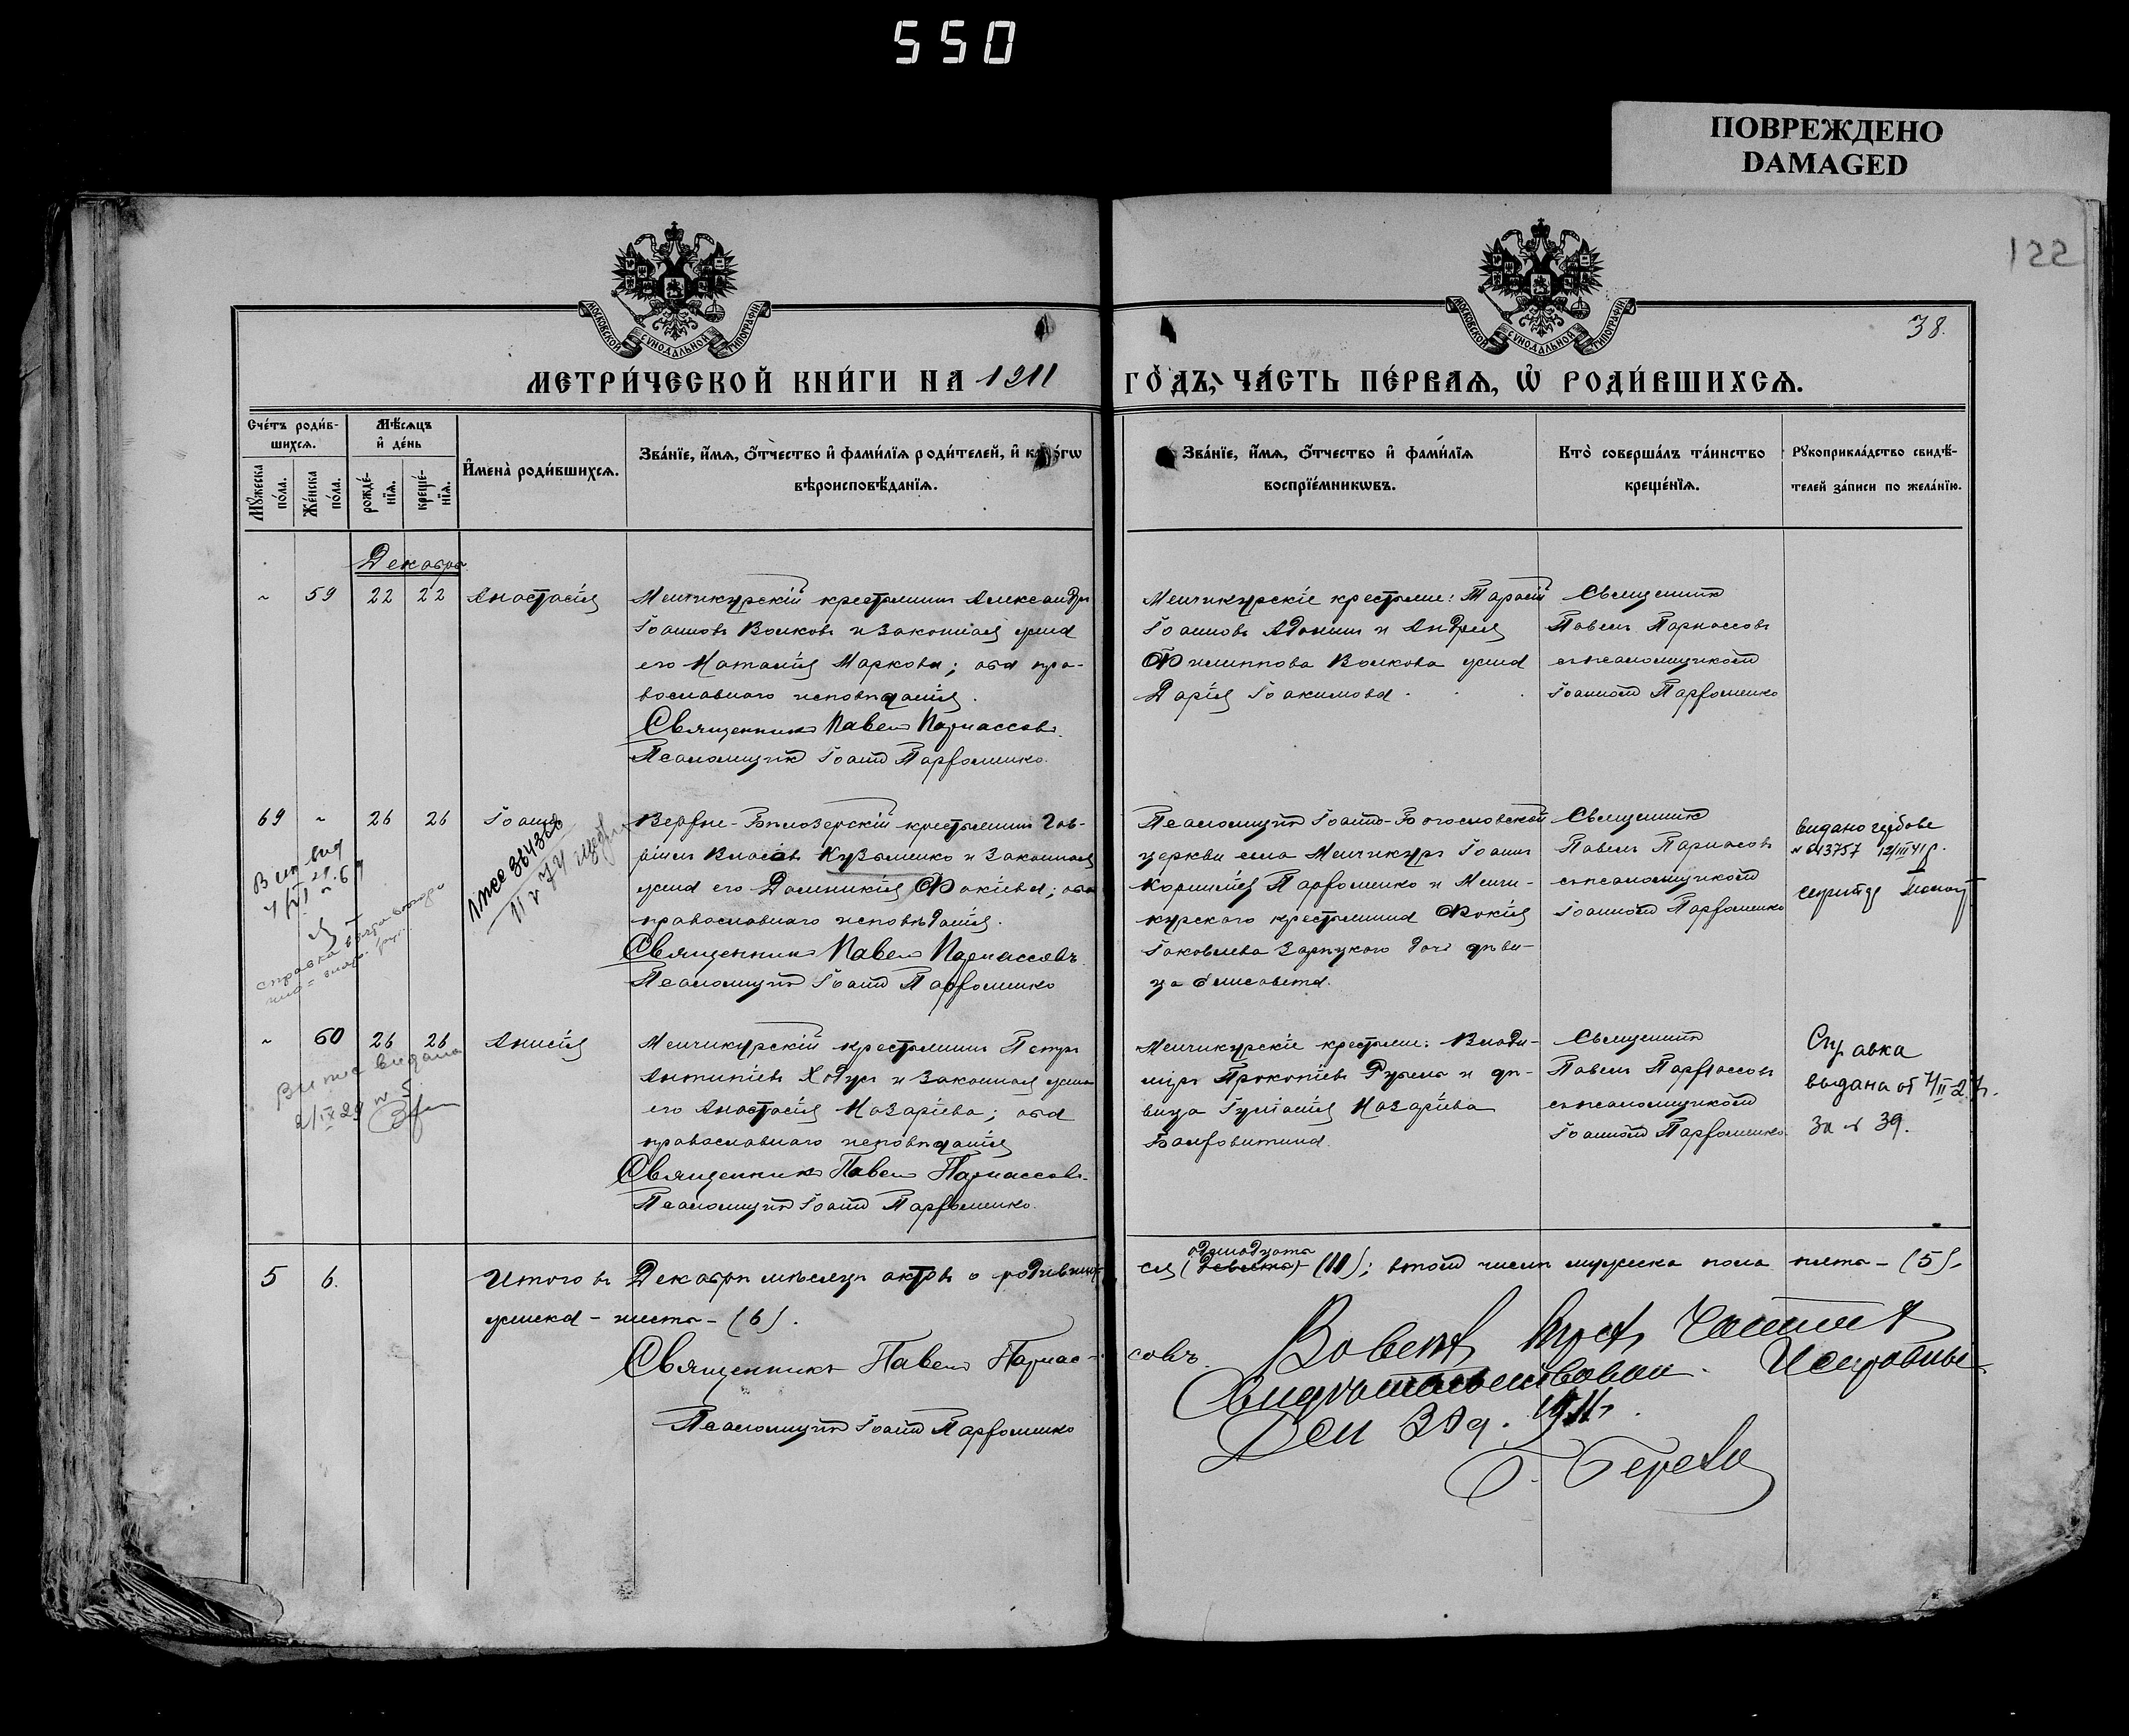 550
ПОВРЕЖДЕНО
DAMAGED
122
МОСКОВСКОЙ СУНОДАЛЬНОЙ ТИПОГРАФІИ
МОСКОВСКОЙ СУНОДАЛЬНОЙ ТИПОГРАФІИ
38.
МЕТРИ́ЧЕСКОЙ КНИ́ГИ НА 1911 ГО́ДЪ, ЧА́СТЬ ПЕ́РВАѦ, Ѡ҆ РОДИ́ВШИХСѦ.
Сче́тъ роди́в-
шихсѧ.
Мꙋ́жеска
по́ла.
Же́нска
по́ла.
Мѣ́сѧцъ
и҆ де́нь
рожде́-
нїѧ.
креще́-
нїѧ.
И҆мена̀ роди́вшихсѧ.
Зва́нїе, и҆́мѧ, ѻ҆́тчество и҆ фами́лїѧ роди́телей, и҆ како́гѡ
вѣроисповѣ́данїѧ.
Зва́нїе, и҆́мѧ, ѻ҆́тчество и҆ фами́лїѧ
воспрїе́мникѡвъ.
Кто̀ соверша́лъ та́инство
креще́нїѧ.
Рꙋкоприкла́дство свидѣ́-
телей за́писи по жела́нїю.
Декабрь
~ 59 22 22 Анастасія
Менчикурскій крестьянинъ Александръ
Іоанновъ Волковъ и законная жена
его Наталія Маркова; оба пра-
вославнаго исповѣданія.
Священникъ Павелъ Парнассовъ.
Псаломщикъ Іоаннъ Парфоменко.
Менчикурскіе крестьяне: Тарасій
Іоанновъ Адонин и Андрея
Филиппова Волкова жена
Дарія Іоакимова.
Священникъ
Павелъ Парнассовъ
съ псаломщикомъ
Іоанномъ Парфоменко
69 ~ 26 26 Іоаннъ
Верхне-Бѣлозерскій крестьянинъ Гав-
ріилъ Власіевъ Кузьменко и законная
жена его Домникія Фокіева; оба
православнаго исповѣданія.
Священникъ Павелъ Парнассовъ
Псаломщикъ Іоаннъ Парфоменко
Псаломщикъ Іоанно-Богословской
церкви села Менчикуръ Іоаннъ
Корниліевъ Парфоменко и Менчи-
курскаго крестьянина Фокія
Іаковлева Зарицкого дочь дѣви-
ца Елисавета.
Священникъ
Павелъ Парнасовъ
съ псаломщикомъ
Іоанномъ Парфоменко
12/III 41 р.
справка
~ 60 26 26 Анисія
2/IX 29 № 5
Менчикурскій крестьянинъ Петръ
Антипіевъ Ходус и законная жена
его Анастасія Назаріева; оба
православнаго исповѣданія
Священникъ Павелъ Парнассовъ.
Псаломщикъ Іоаннъ Парфоменко.
Менчикурскіе крестьяне: Влади-
міръ Прокопіевъ и дѣ-
вица Іуліанія Назаріева
Священникъ
Павелъ Парнассовъ
съ псаломщикомъ
Іоанномъ Парфоменко.
Справка
выдана от 7/II 27 г.
за № 39.
5 6. Итого въ Декабрѣ мѣсяцѣ актовъ о родивших
ся (девять) одинадцать (11); въ томъ числѣ мужеска пола пять - (5),
женска - шесть - (6).
Священникъ Павелъ Парнас-
совъ.
Псаломщикъ Іоаннъ Парфоменко
Свидѣтельствовал. Исправны